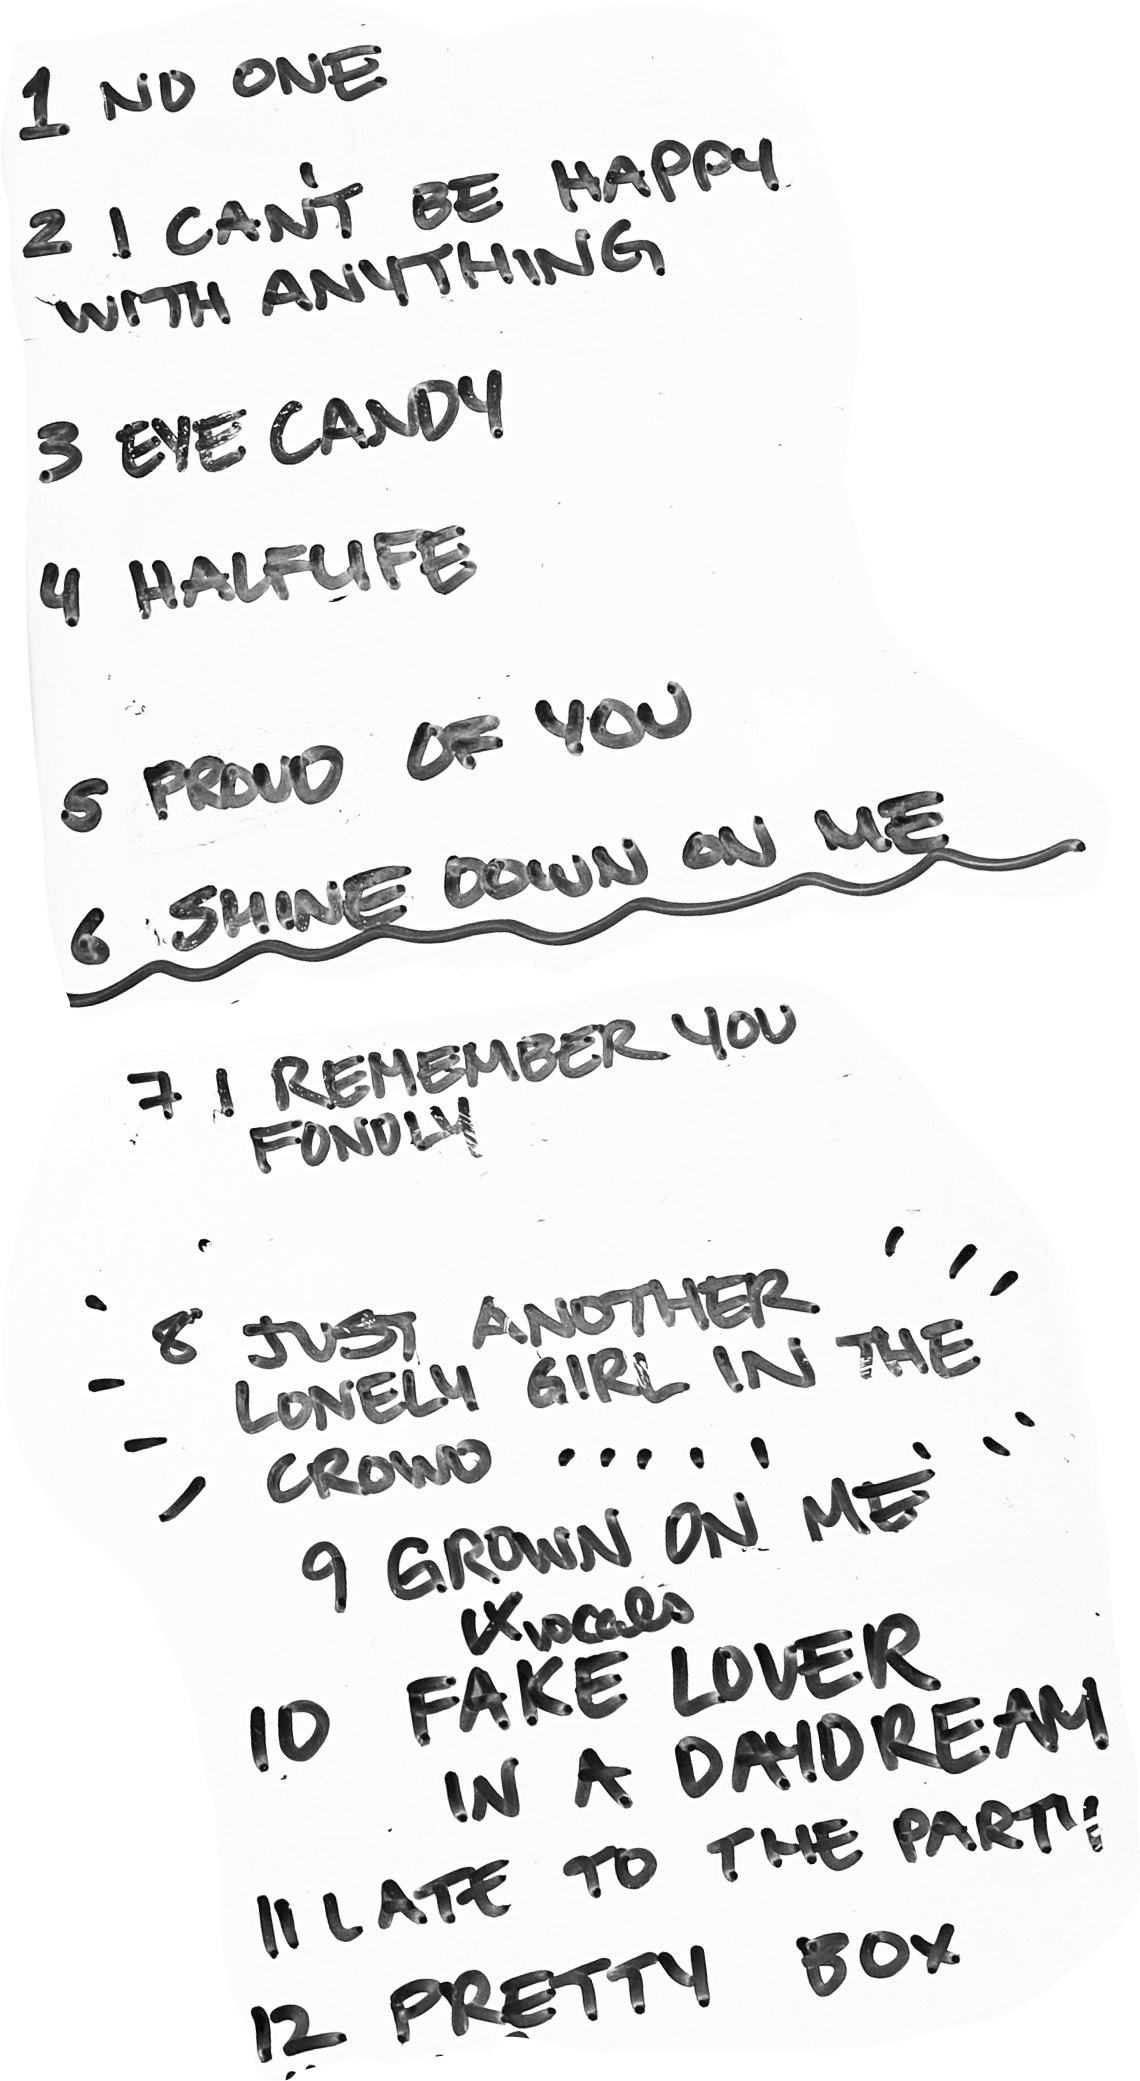 1 NO ONE
2 I CAN'T BE HAPPY
WITH ANYTHING
3 EYE CANDY
4 HALFLIFE
5 PROUD OF YOU
6 SHINE DOWN ON ME
7 I REMEMBER YOU
FONDLY
8 JUST ANOTHER
LONELY GIRL IN THE
CROWD .....
9 GROWN ON ME
vocals
10 FAKE LOVER
IN A DAYDREAM
11 LATE TO THE PARTY
12 PRETTY BOX